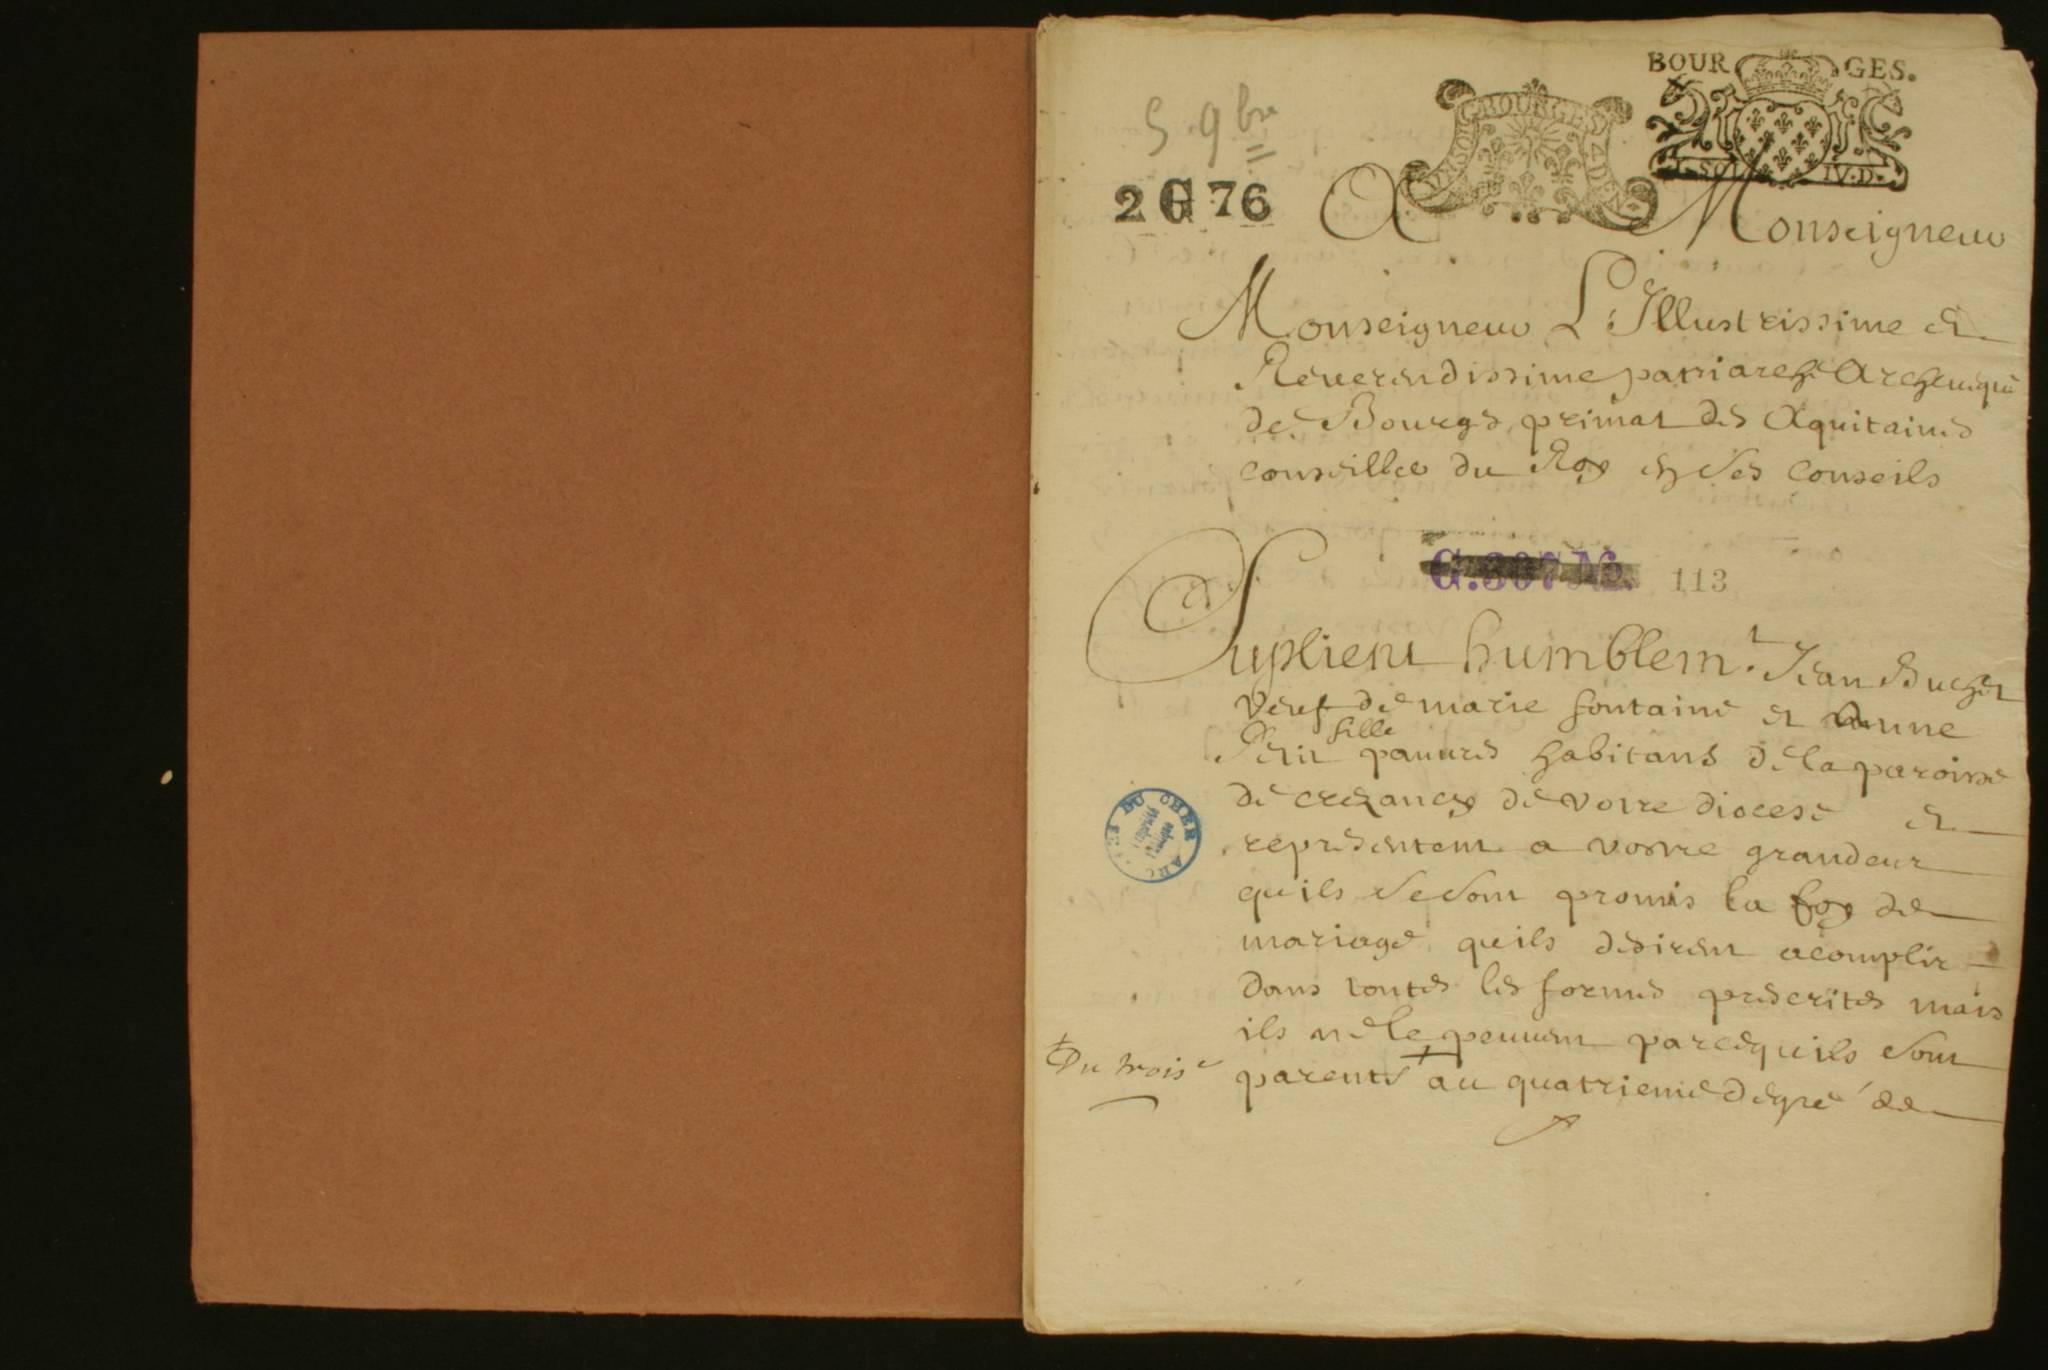 BOURGES.
BOURGES
1. SOL IV. D.
5 9bre
2 G 76
A Monseigneur
Monseigneur L'Illustrissime et
Reverendissime patriarche Archevesque
de Bourges primat des Aquitaines
conseiller du Roy en ses conseils
G.307 No. 113
Suplient humblemt. Jean Buchet
veuf de marie fontaine et une
fille
Petit pauures habitans de la paroisse
de crezancy de votre diocese et
representent a vostre grandeur
quils se sont promis la foy de
mariage quils desirent acomplir
dans toutes les formes prescrites mais
ils ne le peuuent parcequils sont
+ Du troise
parents + au quatrieme degré de
ARCHIVES DU CHER